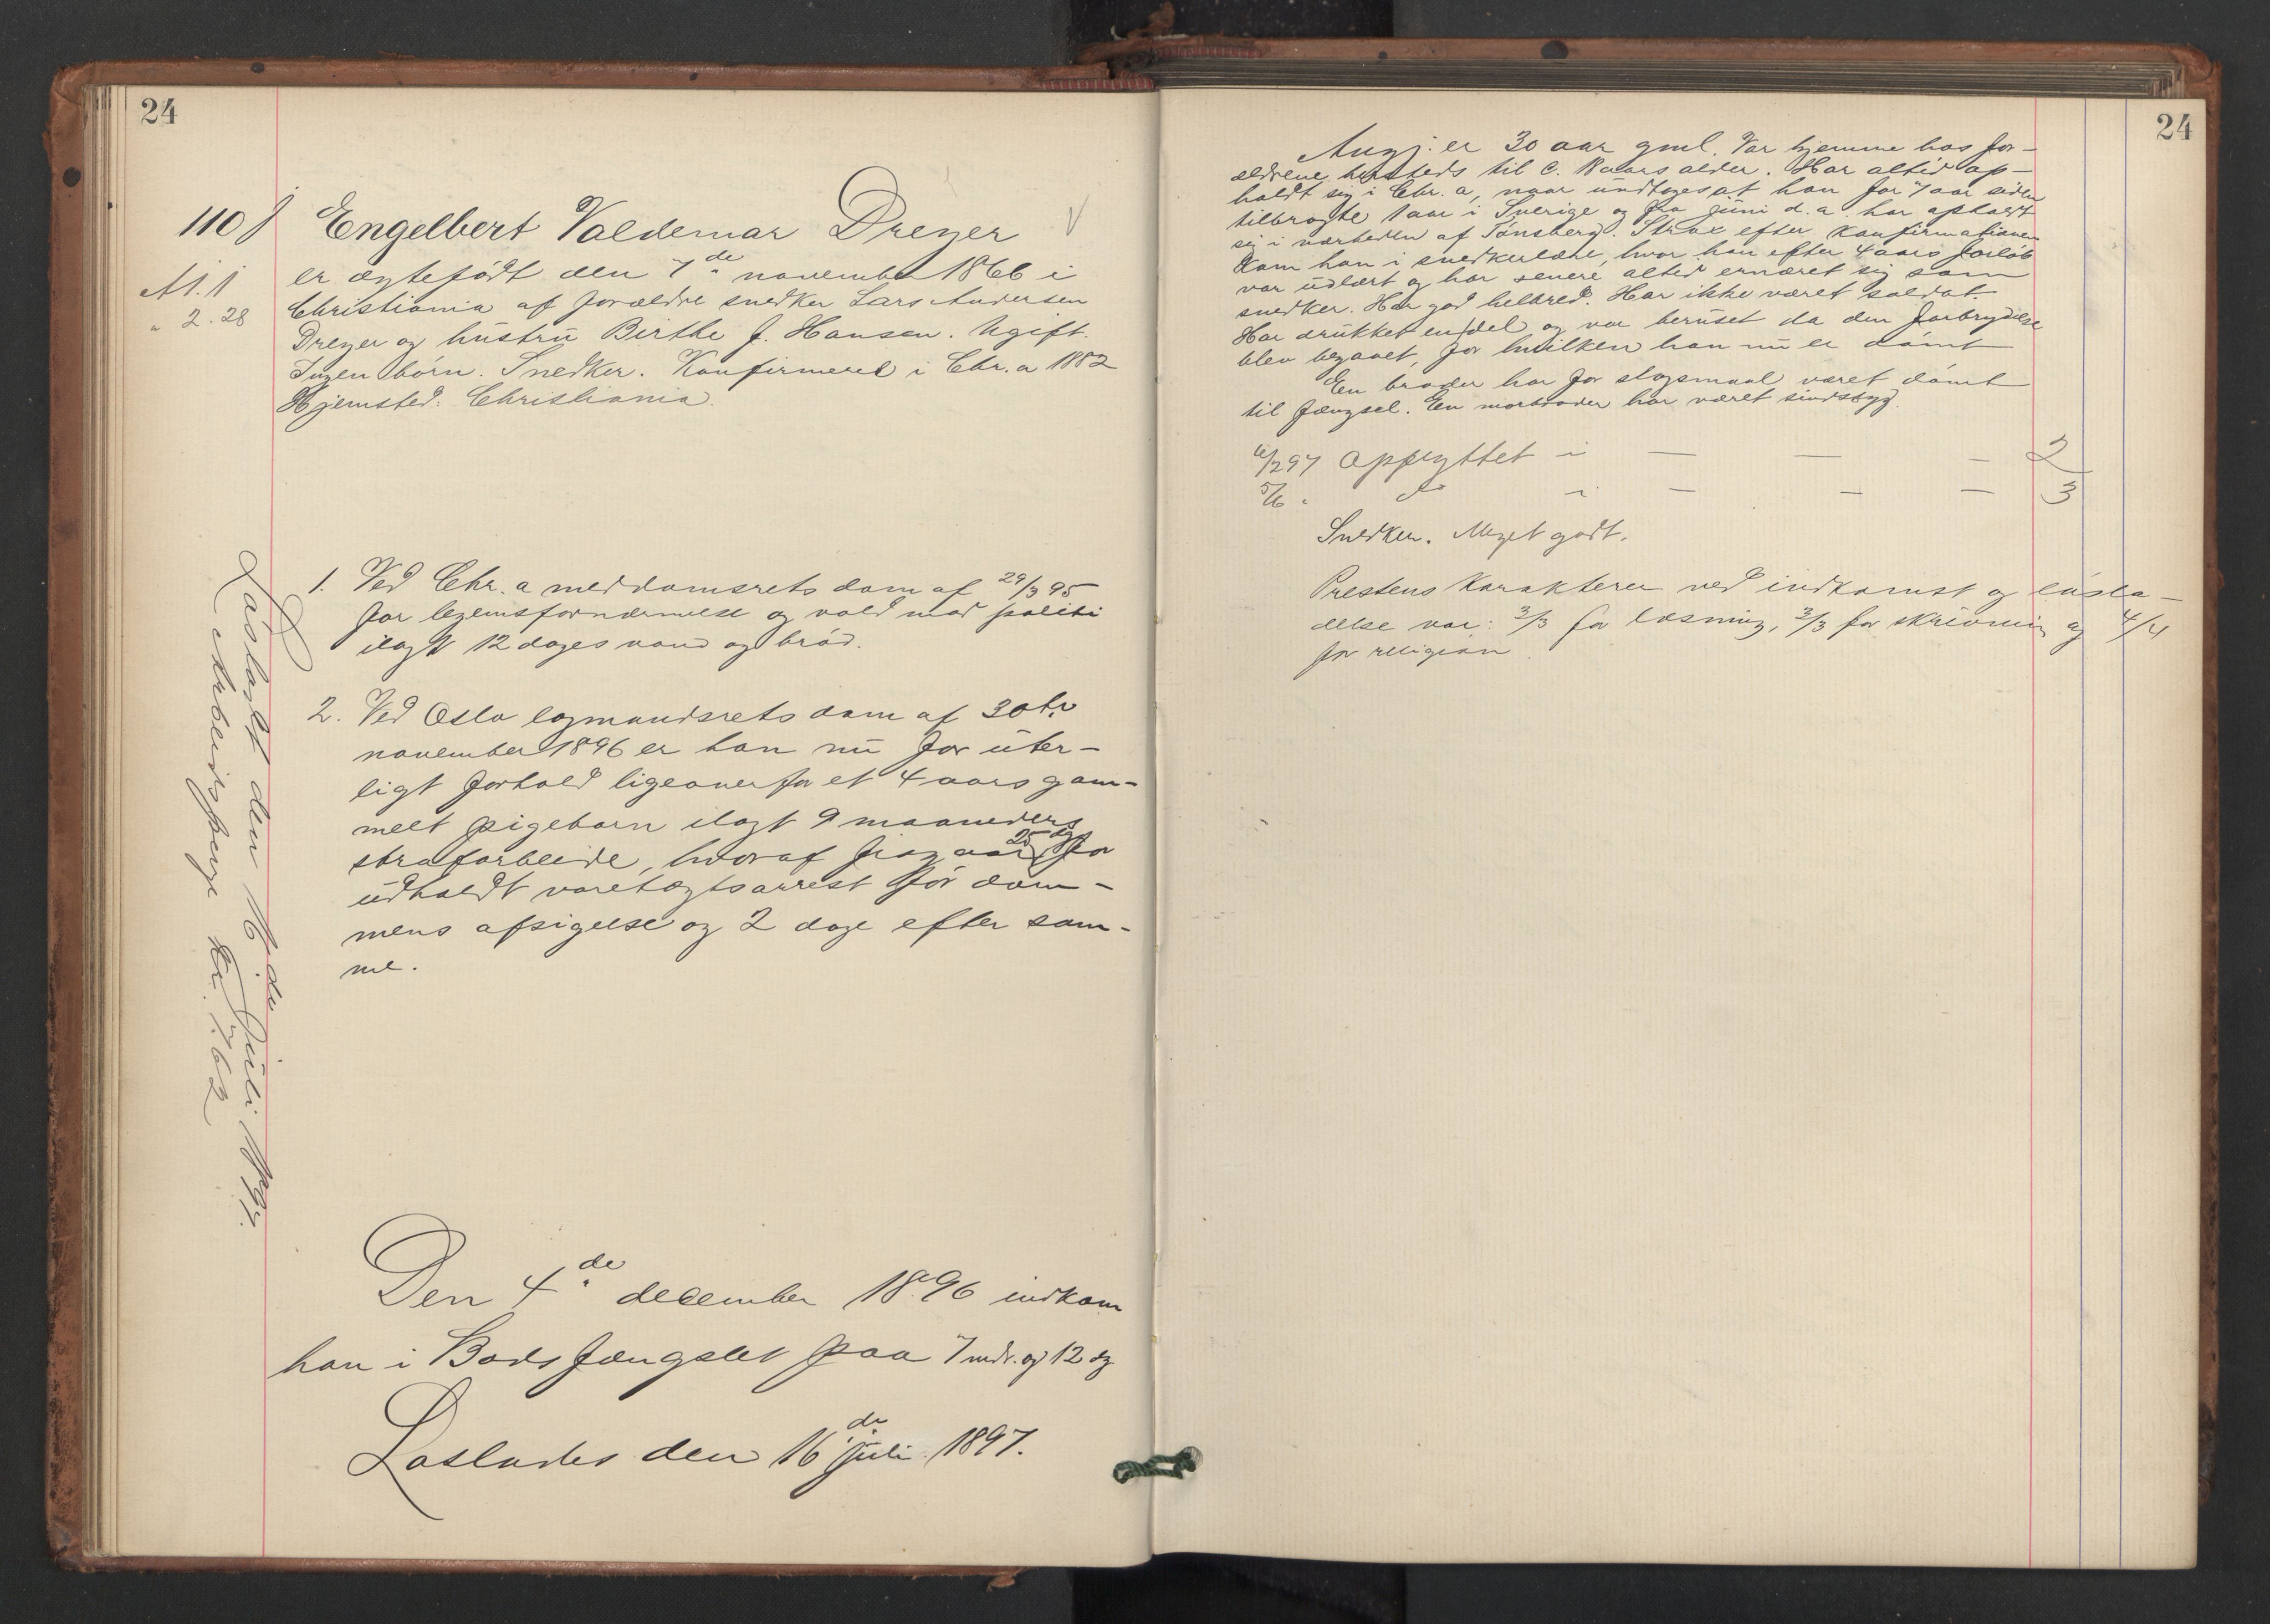 24
110
Engelbert Valdemar Dreyer
er ægtefödt den 7de november 1866 i
Christiania af forældre snedker Lars Andersen
Dreyer og hustru Birthe J. Hansen. Ugift.
Ingen börn. Snedker. Konfirmeret i Chr.a 1882
Hjemsted: Christiania.
A1.1
" 2.28
1. Ved Chr.a meddomsrets dom af 29/3 95
for legemsfornærmelse og vold mod politi
ilagt 12 dages vand og bröd.
2. Ved Oslo lagmandsrets dom af 30te
november 1896 er han nu for uter-
ligt forhold ligeoverfor et 4 aars gam-
melt pigebarn ilagt 9 maaneders
strafarbeide, hvoraf fragaar 25 dg for
udholdt varetægtsarrest för dom-
mens afsigelse og 2 dage efter sam-
me.
Löslagt den 16de juli 1897.
Arbeidspenge Kr. 17.62
Den 4de december 1896 indkom
han i Bodsfængslet paa 7 mdr. og 12 dg
Löslades den 16de juli 1897.
24
Angj. er 30 aar gml. Var hjemme hos for-
ældrene hersteds til c. 18 aars alder. Har altid op-
holdt sig i Chr.a, naar undtages at han for 7 aar siden
tilbragte 1 aar i Sverige og fra juni d.a. har opholdt
sig i nærheden af Tönsberg. Strax efter konfirmationen
kom han i snedkerlære, hvor han efter 4 aars forlöb
var udlært og har senere altid ernæret sig som
snedker. Har god helbred. Har ikke været soldat.
Har drukket en del og var beruset da den forbrydelse
blev begaaet, for hvilken han nu er dömt
En broder har for slagsmaal været dömt
til fængsel. En morbroder har været sindssyg.
6/2 97 Opflyttet i — — — 2
5/6 " do i — — — 3
Snedker. Meget godt.
Prestens karakterer ved indkomst og lösla-
delse var: 3/3 for læsning, 3/3 for skrivning og 4/4
for religion.